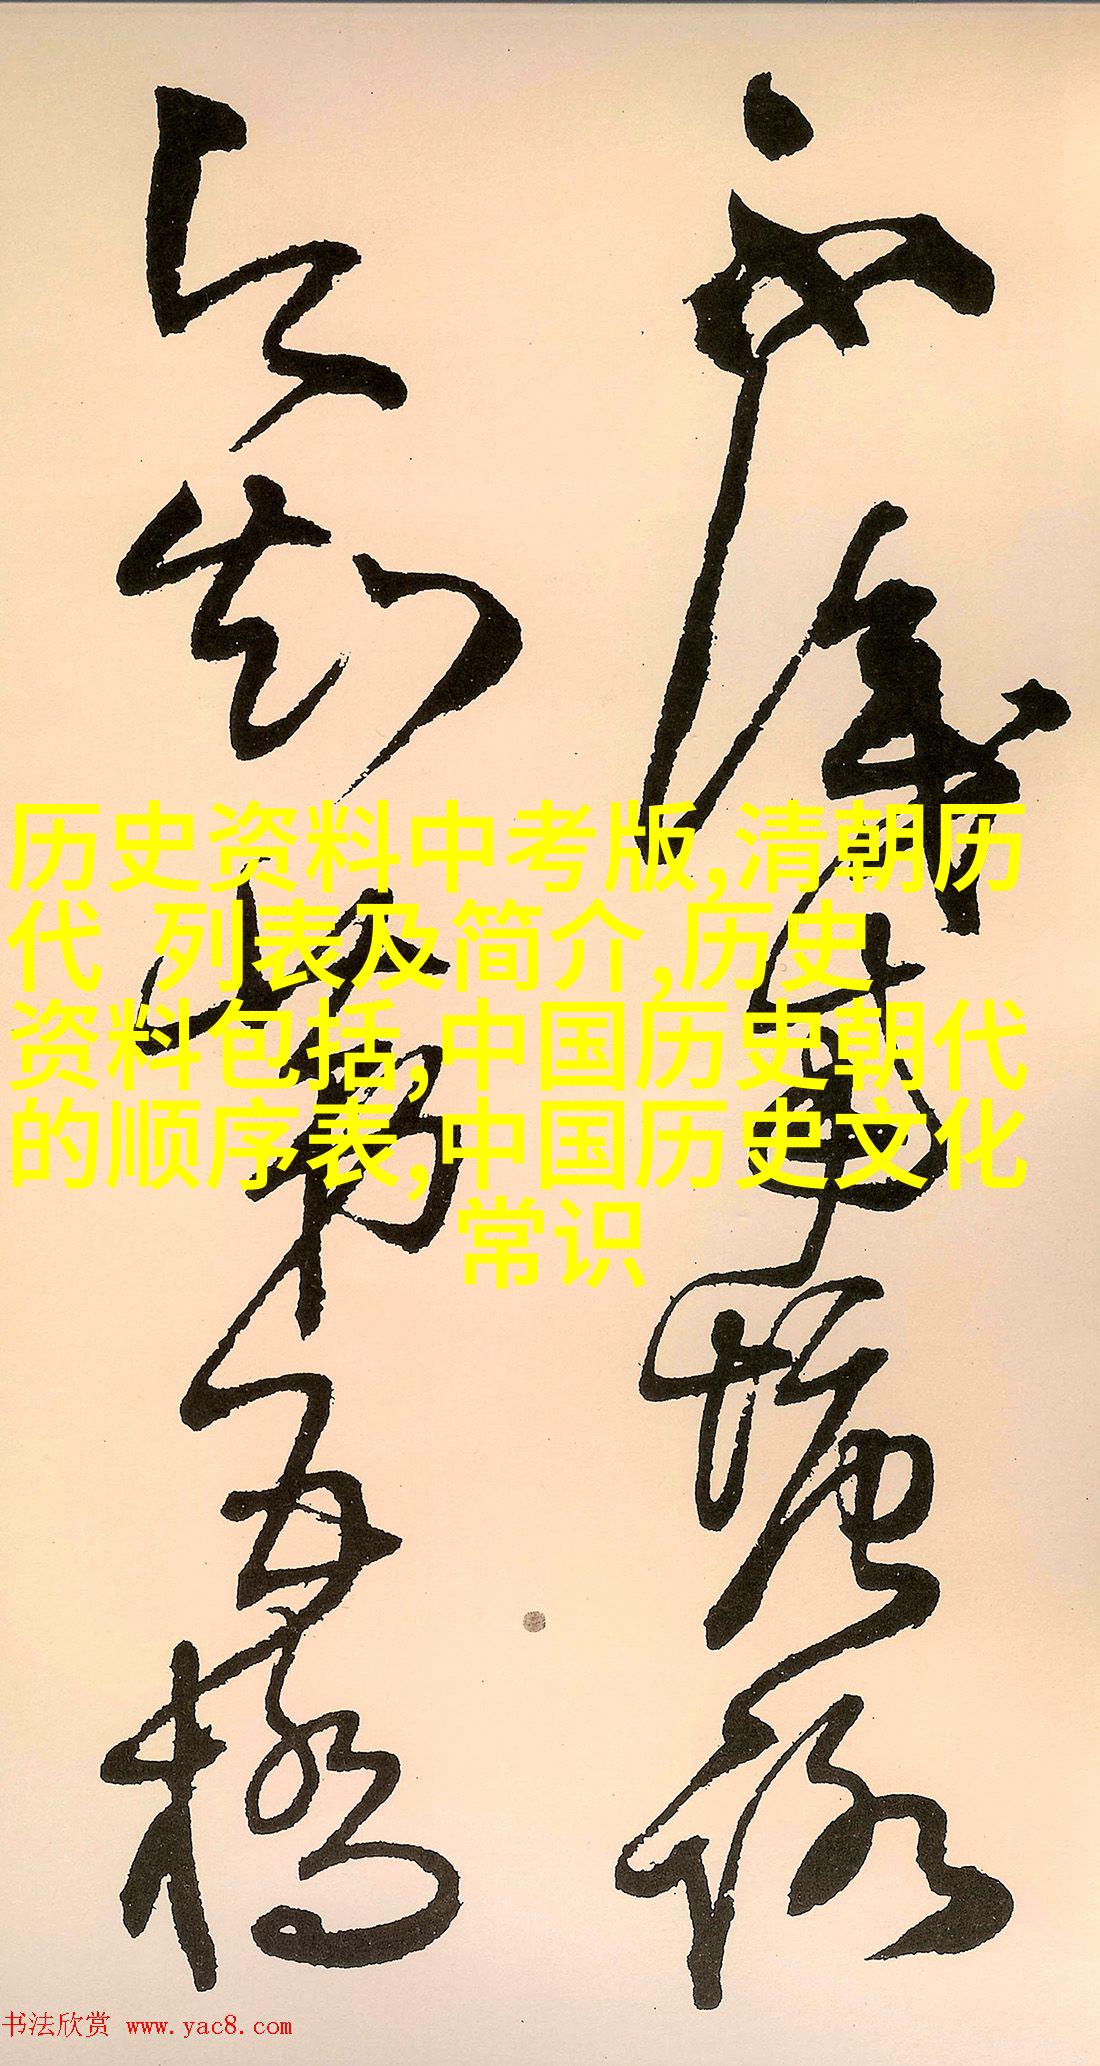 不識南塘路
今知第五橋
历史资料中考版,清朝历
代 列表及简介,历史
资料包括,中国历史朝代
的顺序表,中国历史文化
常识
书法欣赏 www.yac8.com